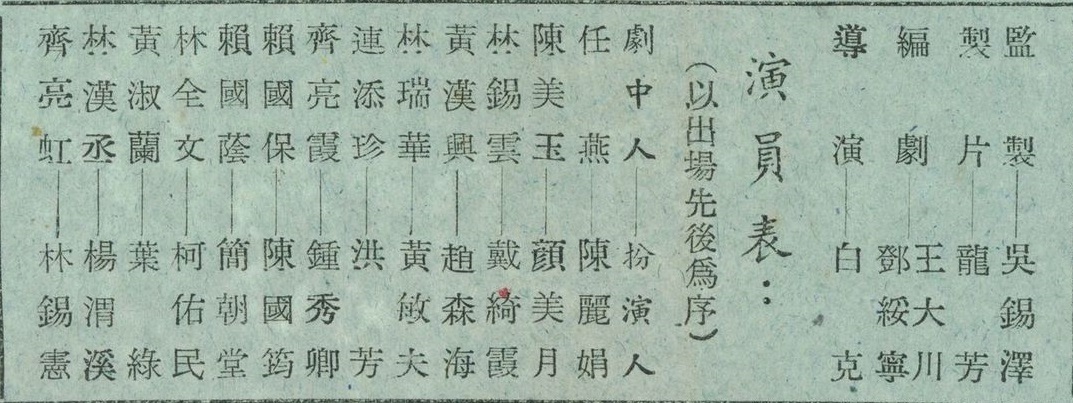 監製——吳錫澤
製片——龍芳
編劇——王大川
鄧綏寧
導演——白克
演員表：
（以出場先後為序）
劇中人——扮演人
任燕——陳麗娟
陳美玉——顏美月
林錫雲——戴綺霞
黃漢興——趙森海
林瑞華——黃敏夫
連添珍——洪芳
齊亮霞——鍾秀卿
賴國保——陳國筠
賴國蔭——簡朝堂
林全文——柯佑民
黃淑蘭——葉綠
林漢丞——楊渭溪
齊亮虹——林錫憲